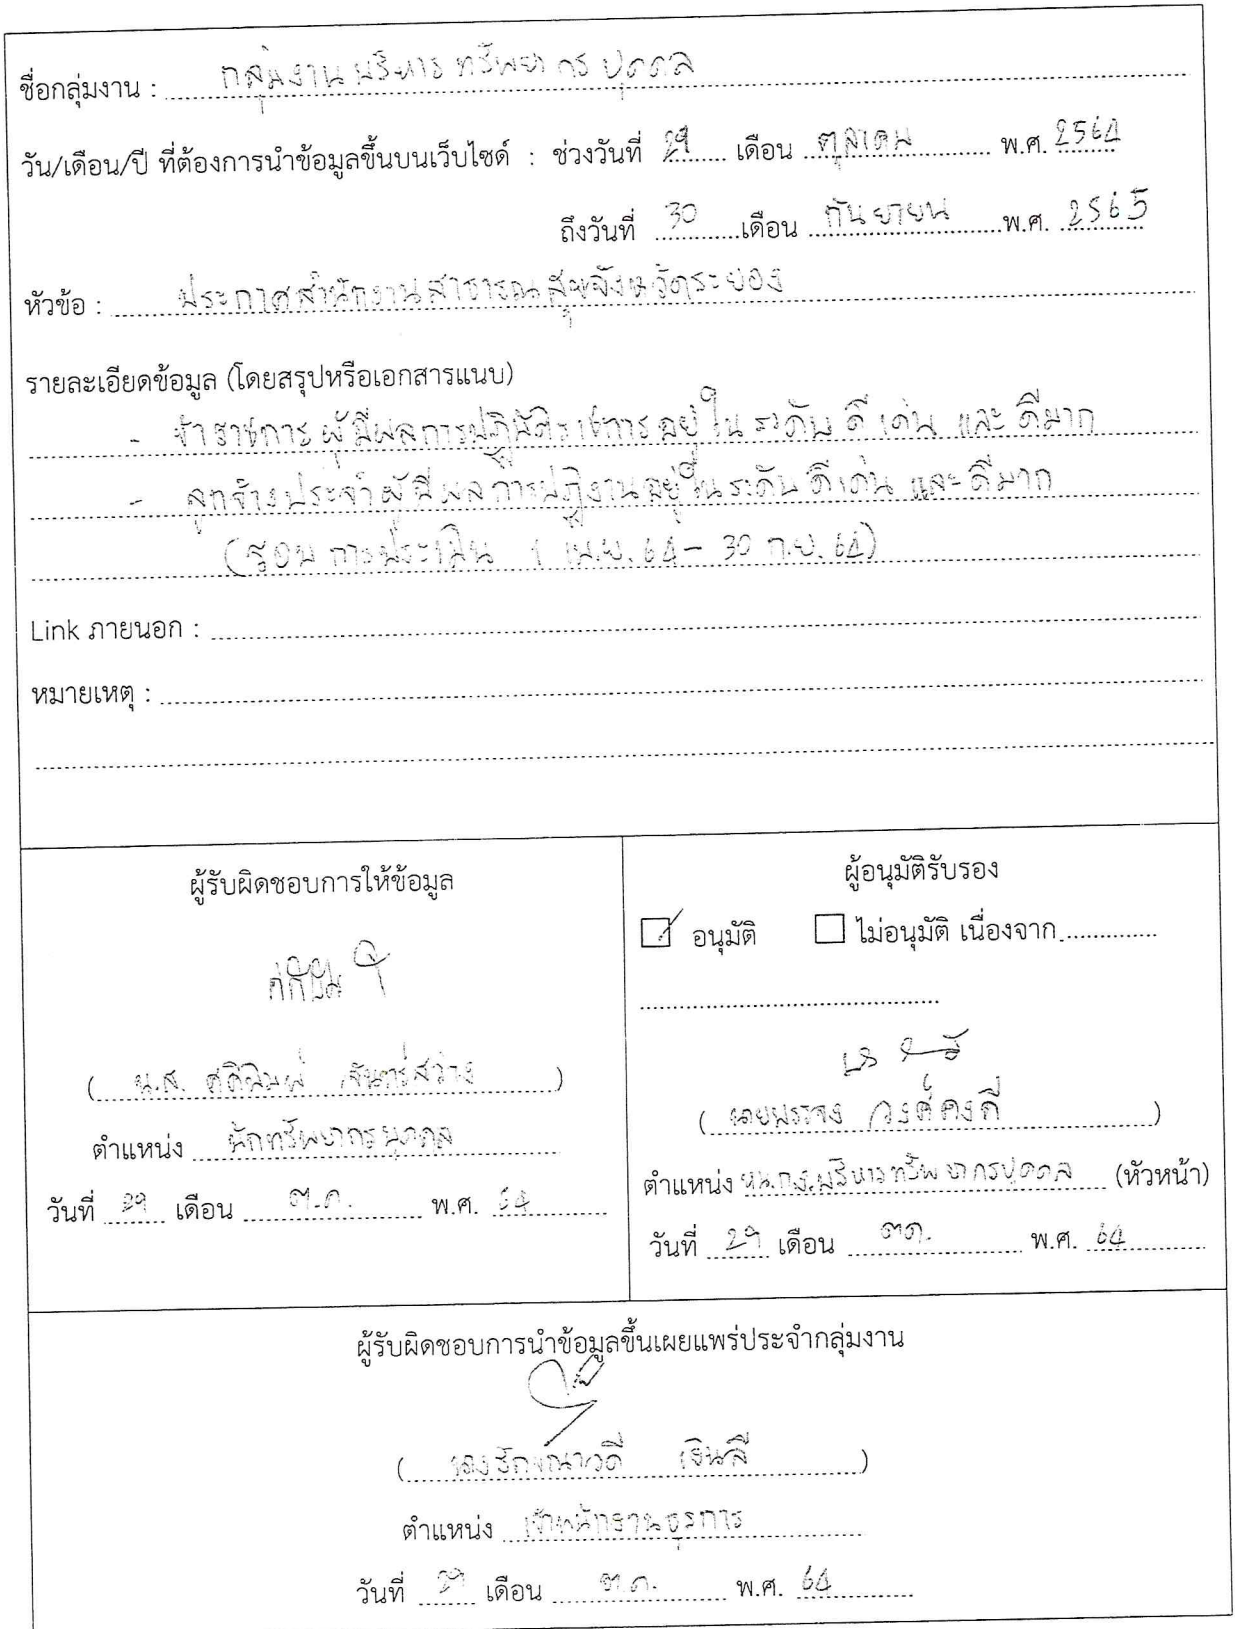 ชื่อกลุ่มงาน : กลุ่มงานบริหารทรัพยากรบุคคล
วัน/เดือน/ปี ที่ต้องการนำข้อมูลขึ้นบนเว็บไซด์ : ช่วงวันที่ 29 เดือน ตุลาคม พ.ศ. 2564
ถึงวันที่ 30 เดือน กันยายน พ.ศ. 2565
หัวข้อ : ประกาศสำนักงานสาธารณสุขจังหวัดระยอง
รายละเอียดข้อมูล (โดยสรุปหรือเอกสารแนบ)
- ข้าราชการผู้มีผลการปฏิบัติราชการอยู่ในระดับ ดีเด่น และ ดีมาก
- ลูกจ้างประจำผู้มีผลการปฏิงานอยู่ในระดับ ดีเด่น และดีมาก
(รอบการประเมิน 1 เม.ย. 64 - 30 ก.ย. 64)
Link ภายนอก :
หมายเหตุ :
ผู้รับผิดชอบการให้ข้อมูล
( น.ส. ศศิพิมพ์ จันทร์สว่าง )
ตำแหน่ง นักทรัพยากรบุคคล
วันที่ 29 เดือน ต.ค. พ.ศ. 64
ผู้อนุมัติรับรอง
อนุมัติ ไม่อนุมัติ เนื่องจาก
( วงศ์คงดี )
ตำแหน่ง หน.กง.บริหารทรัพยากรบุคคล (หัวหน้า)
วันที่ 29 เดือน ตค. พ.ศ. 64
ผู้รับผิดชอบการนำข้อมูลขึ้นเผยแพร่ประจำกลุ่มงาน
( เงินลี )
ตำแหน่ง เจ้าพนักงานธุรการ
วันที่ 29 เดือน ต.ค. พ.ศ. 64